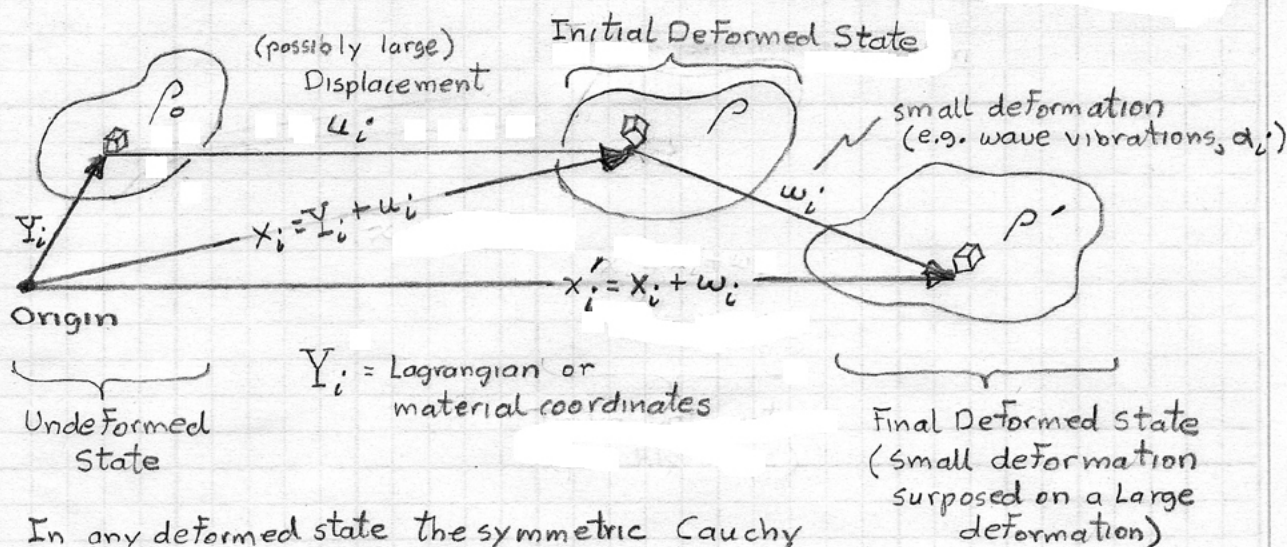 (possibly large)
Displacement
u_i
Initial Deformed State
ρ_o
ρ
small deformation
(e.g. wave vibrations, α_i)
Y_i
x_i = Y_i + u_i
w_i
ρ'
x_i' = x_i + w_i
Origin
Y_i = Lagrangian or
material coordinates
Undeformed
State
Final Deformed State
(small deformation
surposed on a Large
deformation)
In any deformed state the symmetric Cauchy